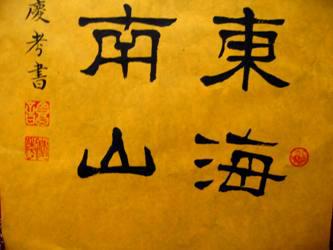 東海
南山
慶考書